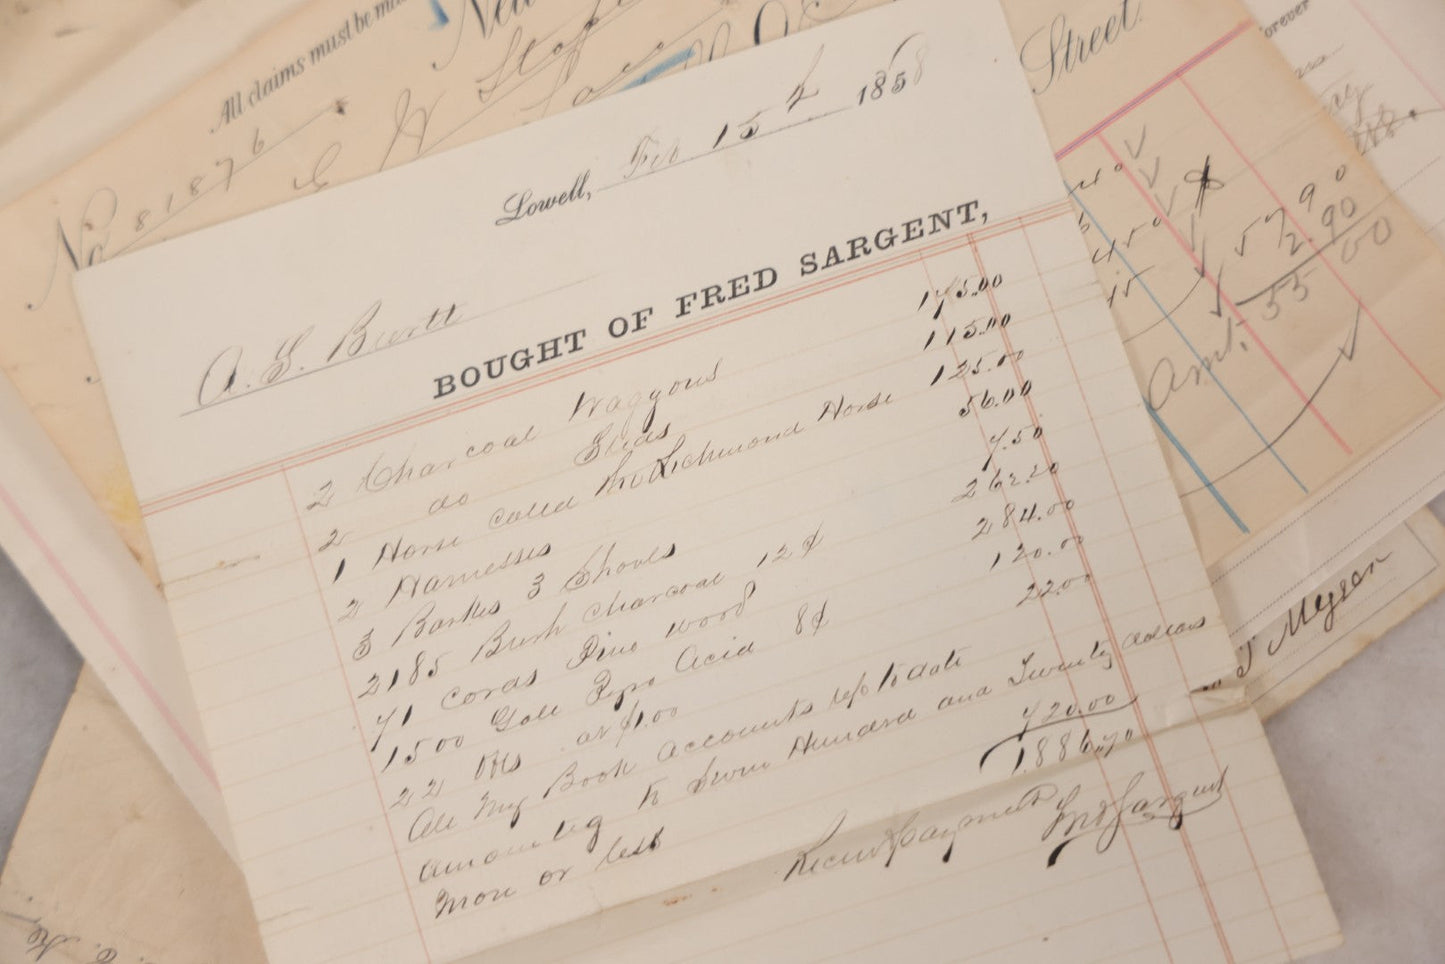 All claims must be
No 81876
Street.
forever
Lowell, Feb 15th 1858
A. G. Burtt
BOUGHT OF FRED SARGENT,
2 Charcoal Waggons 175.00
2 do Sleds 115.00
1 Horse called the Richmond Horse 125.00
2 Harnesses 56.00
3 Baskes 3 Shovls 7.50
2185 Bush charcoal 12¢ 262.20
71 cords Pine wood 284.00
1500 Gall Pyro Acid 8¢ 120.00
22 at $1.00 22.00
All My Book accounts up to date
amounting to Seven Hundred and Twenty dollars
more or less 720.00
1886.70
Recievd payment Fred Sargent
$ 57 90
2.90
Amt. 55 00
T Mysen